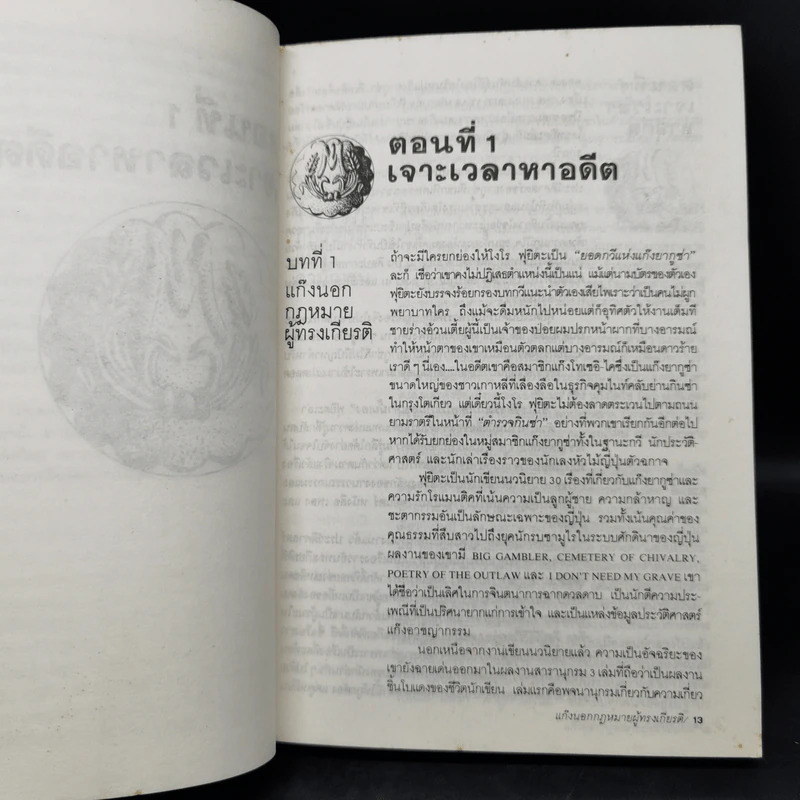 ตอนที่ 1
เจาะเวลาหาอดีต
บทที่ 1
แก๊งนอก
กฎหมาย
ผู้ทรงเกียรติ
ถ้าจะมีใครยกย่องให้โงโร ฟุยิตะเป็น "ยอดกวีแห่งแก๊งยากูซ่า"
ละก็ เชื่อว่าเขาคงไม่ปฏิเสธตำแหน่งนี้เป็นแน่ แม้แต่นามบัตรของตัวเอง
ฟุยิตะยังบรรจงร้อยกรองบทกวีแนะนำตัวเองเสียไพเราะว่าเป็นคนไม่ผูก
พยาบาทใคร ถึงแม้จะดื่มหนักไปหน่อยแต่ก็อุทิศตัวให้งานเต็มที่
ชายร่างอ้วนเตี้ยผู้นี้เป็นเจ้าของปอยผมปรกหน้าผากที่บางอารมณ์
ทำให้หน้าตาของเขาเหมือนตัวตลกแต่บางอารมณ์ก็เหมือนดาวร้าย
เราดี ๆ นี่เอง....ในอดีตเขาคือสมาชิกแก๊งโทเซอิ-ไคซึ่งเป็นแก๊งยากูซ่า
ขนาดใหญ่ของชาวเกาหลีที่เลื่องลือในธุรกิจคุมไนท์คลับย่านกินซ่า
ในกรุงโตเกียว แต่เดี๋ยวนี้โงโร ฟุยิตะไม่ต้องลาดตระเวนไปตามถนน
ยามราตรีในหน้าที่ "ตำรวจกินซ่า" อย่างที่พวกเขาเรียกกันอีกต่อไป
หากได้รับยกย่องในหมู่สมาชิกแก๊งยากูซ่าทั้งในฐานะกวี นักประวัติ-
ศาสตร์ และนักเล่าเรื่องราวของนักเลงหัวไม้ญี่ปุ่นตัวฉกาจ
ฟุยิตะเป็นนักเขียนนวนิยาย 30 เรื่องที่เกี่ยวกับแก๊งยากูซ่าและ
ความรักโรแมนติคที่เน้นความเป็นลูกผู้ชาย ความกล้าหาญ และ
ชะตากรรมอันเป็นลักษณะเฉพาะของญี่ปุ่น รวมทั้งเน้นคุณค่าของ
คุณธรรมที่สืบสาวไปถึงยุคนักรบซามูไรในระบบศักดินาของญี่ปุ่น
ผลงานของเขามี BIG GAMBLER, CEMETERY OF CHIVALRY,
POETRY OF THE OUTLAW และ I DON'T NEED MY GRAVE เขา
ได้ชื่อว่าเป็นเลิศในการจินตนาการฉากดวลดาบ เป็นนักตีความประ-
เพณีที่เป็นปริศนายากแก่การเข้าใจ และเป็นแหล่งข้อมูลประวัติศาสตร์
แก๊งอาชญากรรม
นอกเหนือจากงานเขียนนวนิยายแล้ว ความเป็นอัจฉริยะของ
เขายังฉายเด่นออกมาในผลงานสารานุกรม 3 เล่มที่ถือว่าเป็นผลงาน
ชิ้นโบแดงของชีวิตนักเขียน เล่มแรกคือพจนานุกรมเกี่ยวกับความเกี่ยว
แก๊งนอกกฎหมายผู้ทรงเกียรติ/ 13